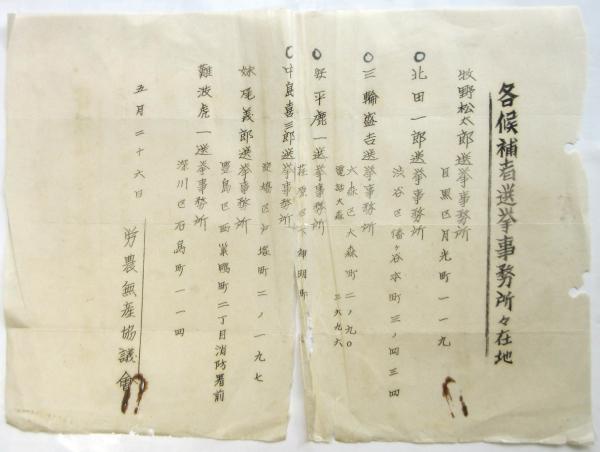 各候補者選挙事務所々在地
牧野松太郎選挙事務所
目黒区月光町一一九
〇北田一郎選挙事務所
渋谷区幡ヶ谷本町三ノ四三四
〇三輪盛吉選挙事務所
大森区大森町二ノ九〇
電話大森二六九六
〇平鹿一選挙事務所
荏原区下神明町
〇中島喜三郎選挙事務所
淀橋区戸塚町二ノ一九七
妹尾義郎選挙事務所
豊島区西巣鴨町二丁目消防署前
難波虎一選挙事務所
深川区石島町一一四
五月二十六日
労農無産協議會